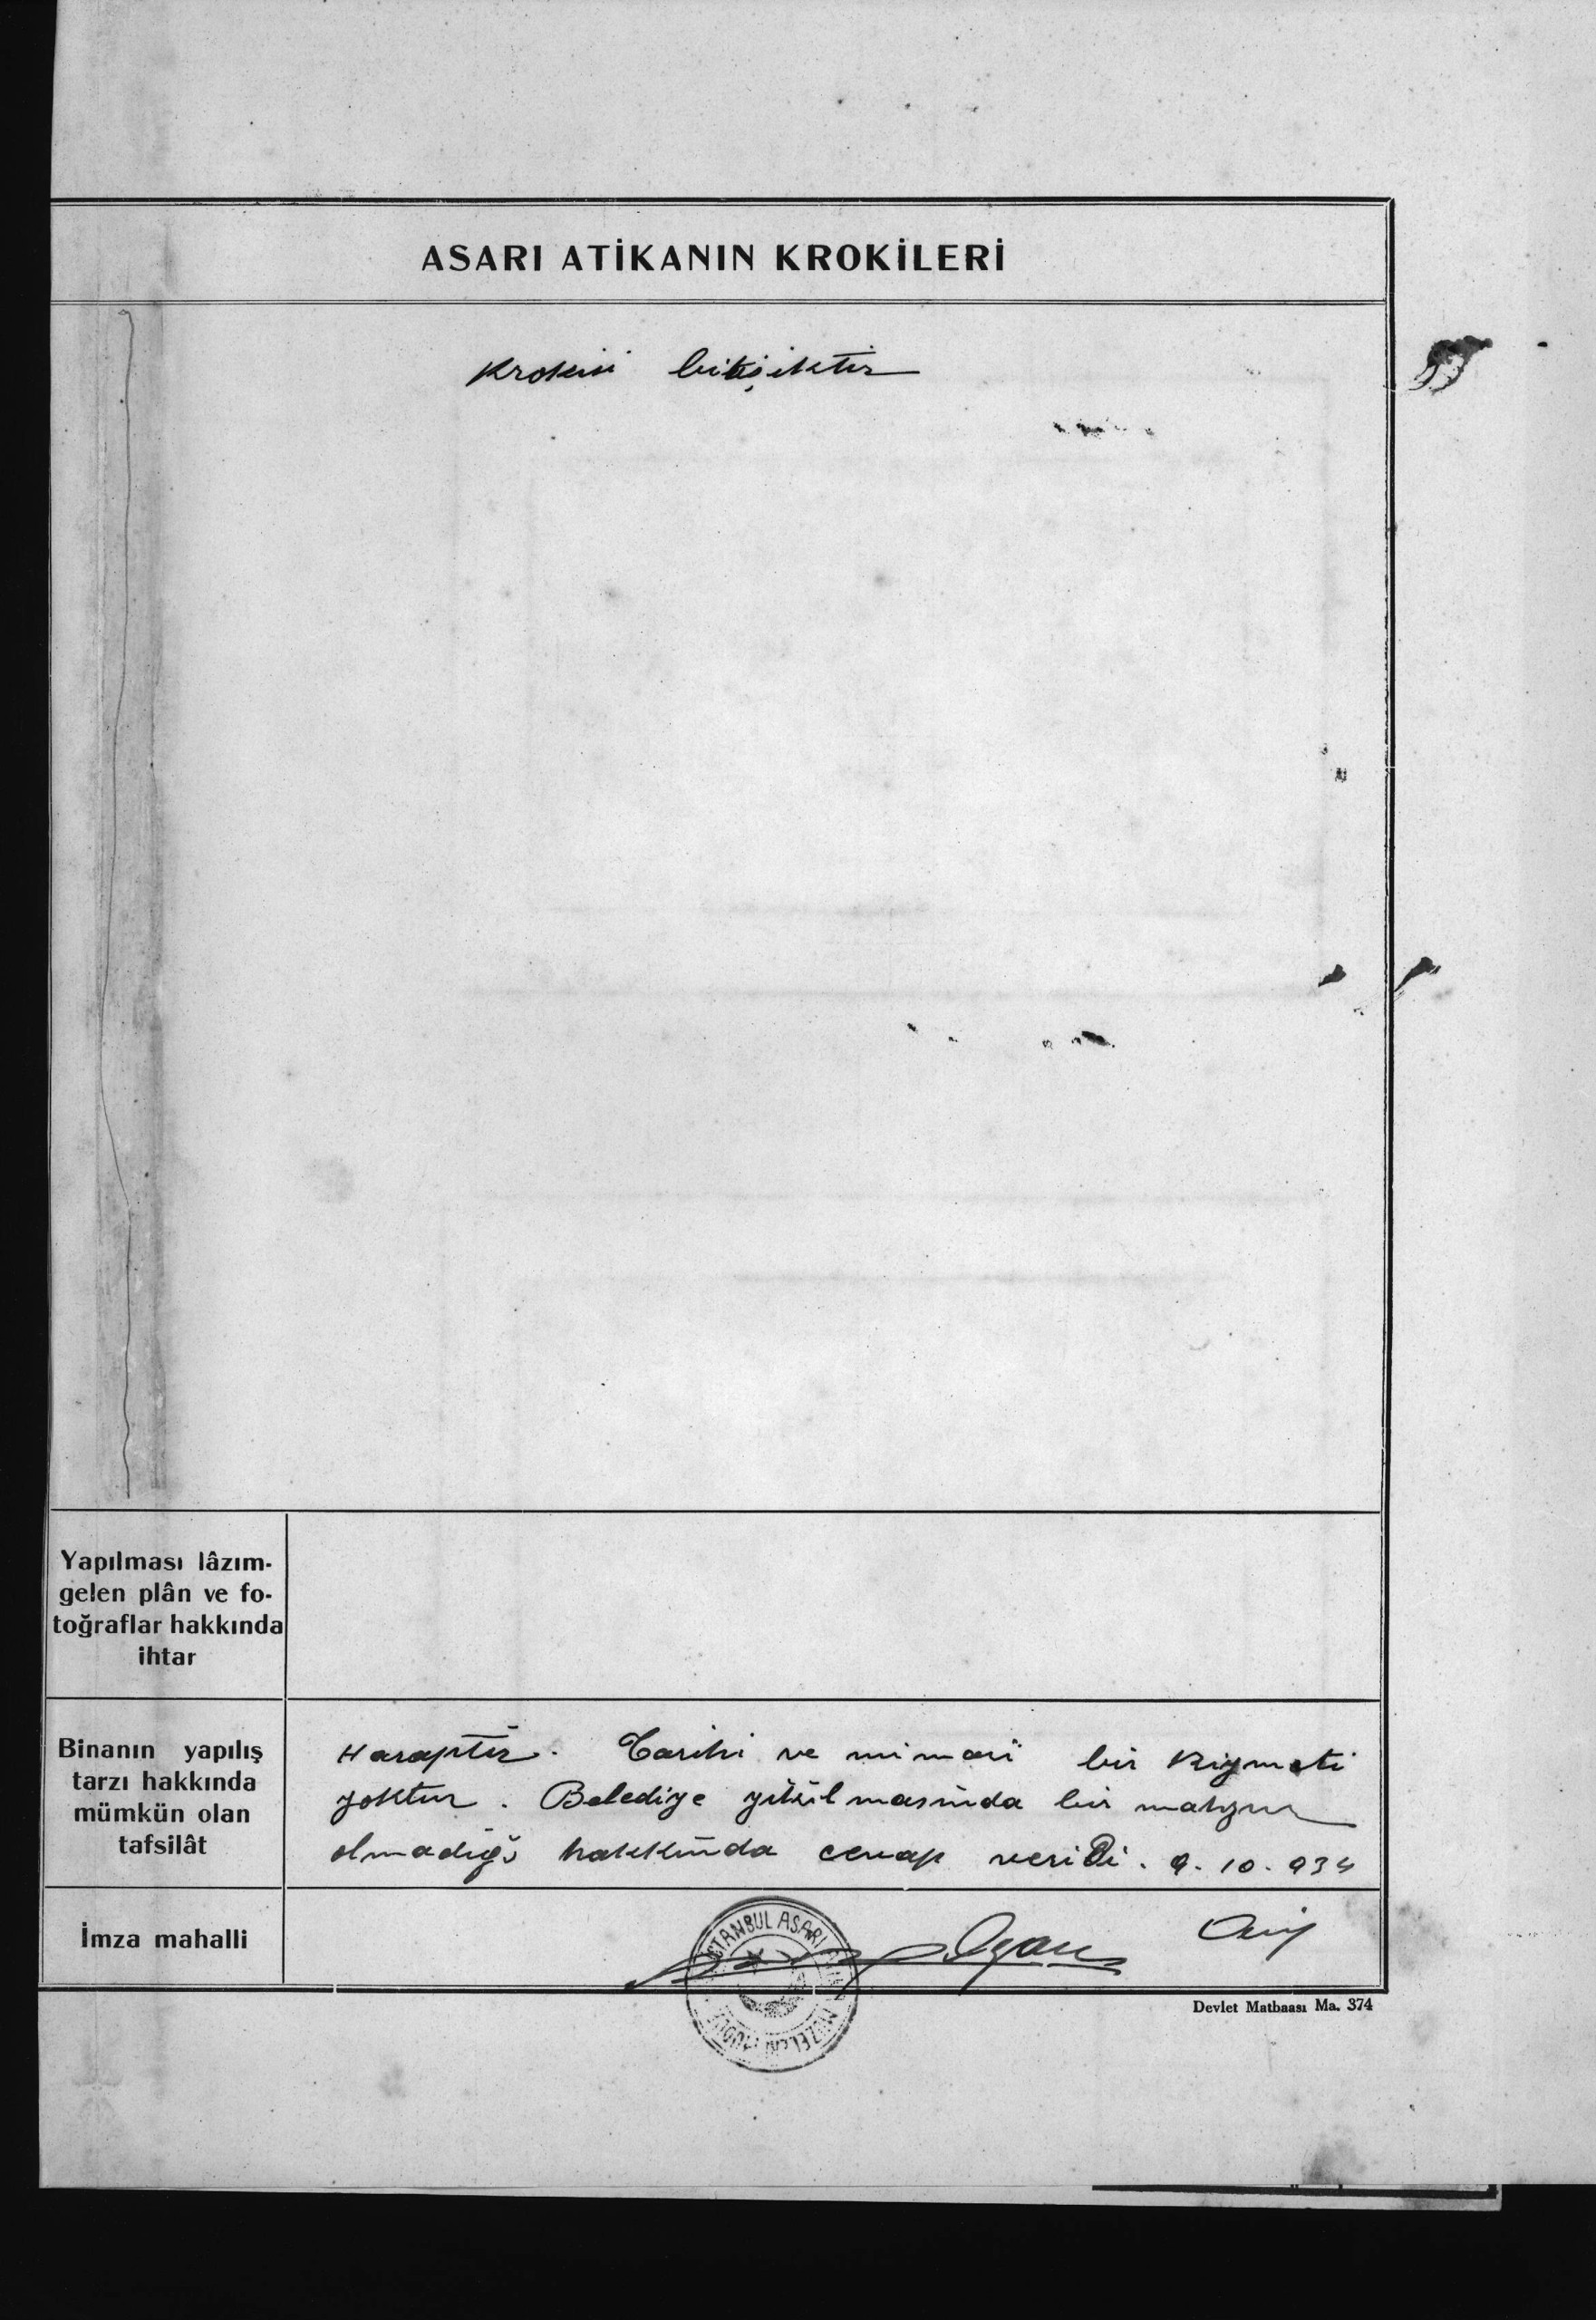 ASARI ATİKANIN KROKİLERİ
Krokisi bitişiktir
Yapılması lâzım-
gelen plân ve fo-
toğraflar hakkında
ihtar
Binanın yapılış
tarzı hakkında
mümkün olan
tafsilât
Haraptır. Tarihi ve mimari bir kiymeti
yoktur. Belediye yıkılmasında bir mahzur
olmadığı hakkında cevap verildi. 9.10.934
İmza mahalli
İSTANBUL ASARI
Ogan
Devlet Matbaası Ma. 374